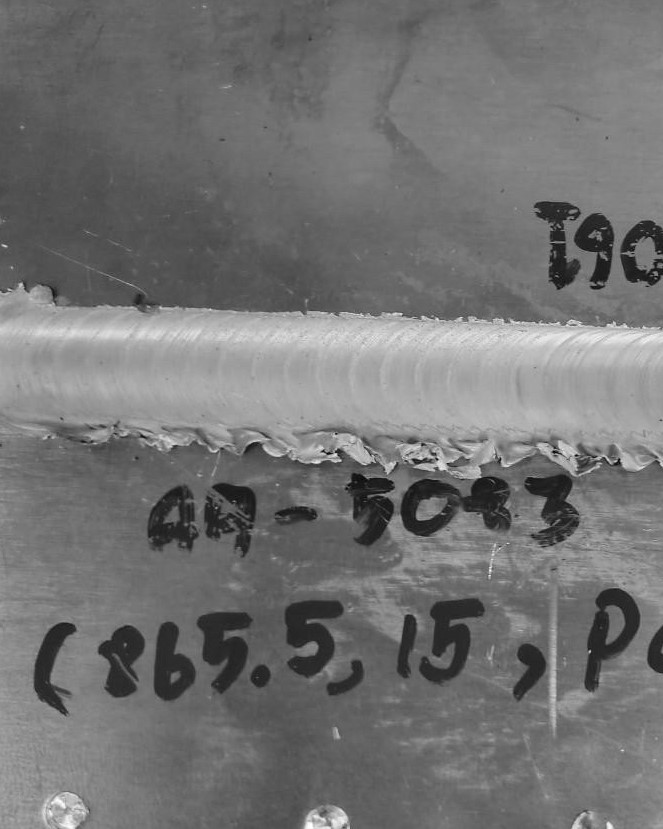 I90
AA-5083
(865.5, 15, Pa